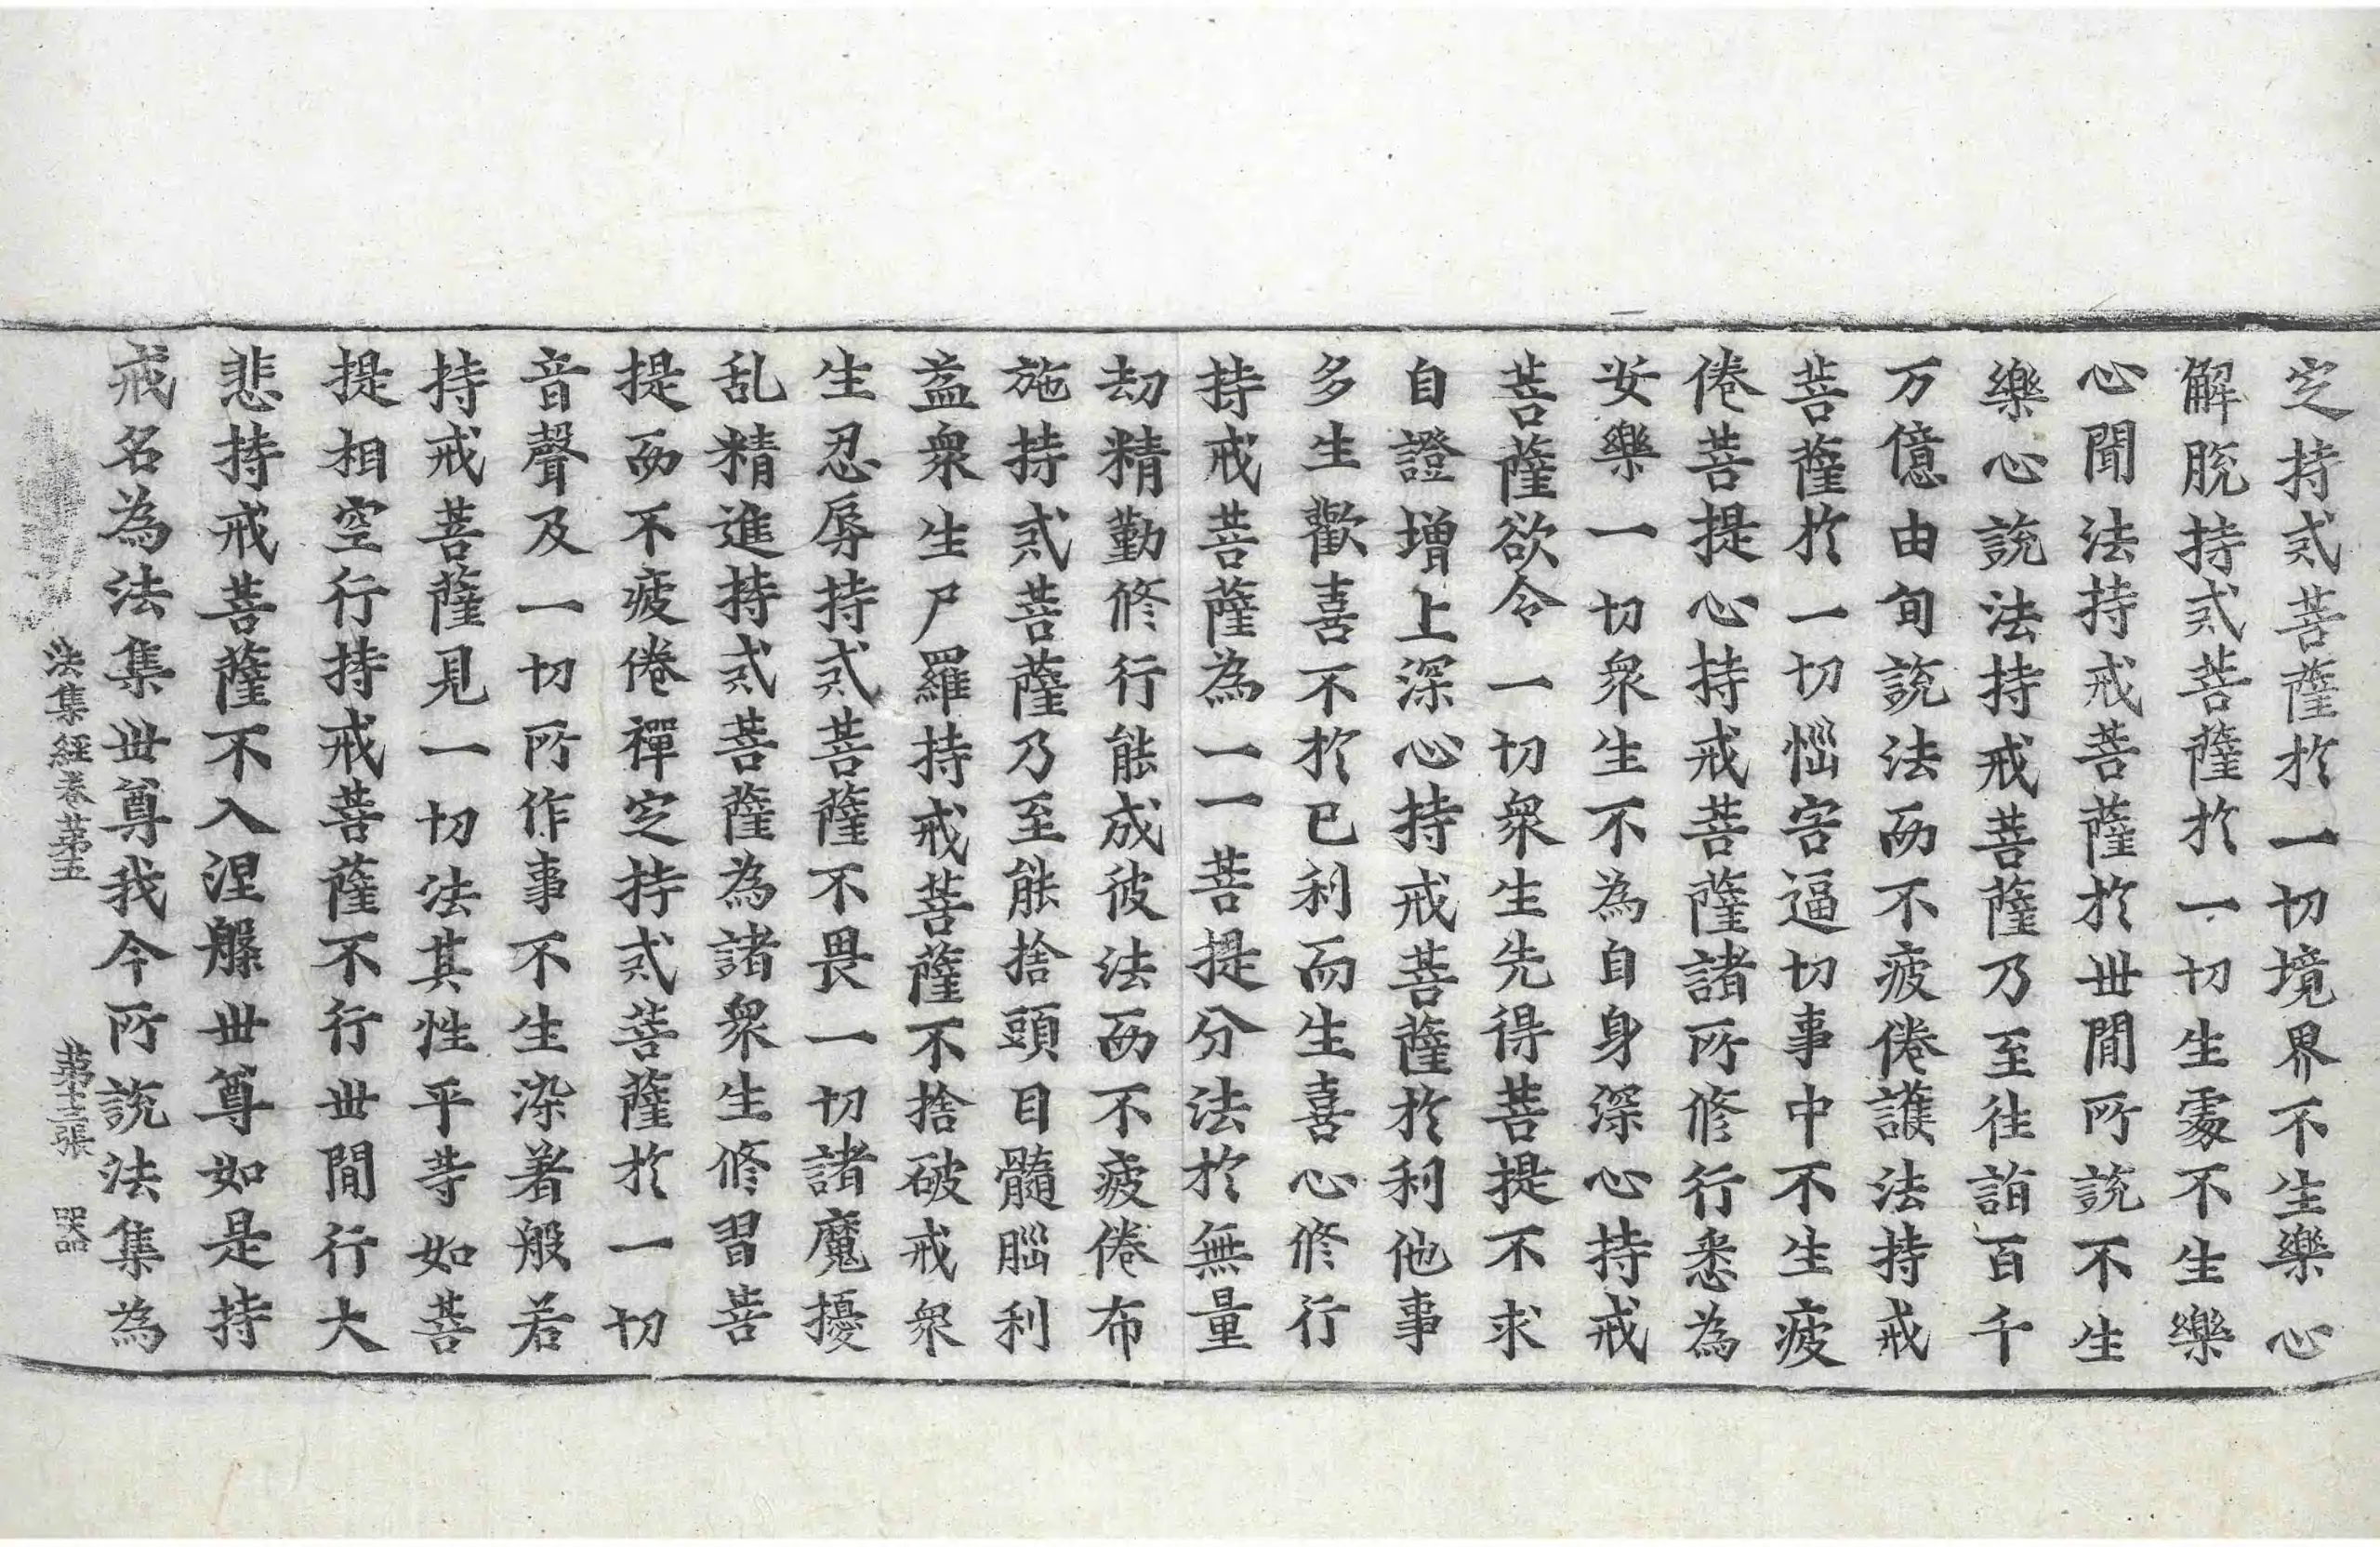 定持戒菩薩於一切境界不生樂心
解脫持戒菩薩於一切生處不生樂
心聞法持戒菩薩於世間所說不生
樂心說法持戒菩薩乃至往詣百千
万億由旬說法而不疲倦護法持戒
菩薩於一切惱害逼切事中不生疲
倦菩提心持戒菩薩諸所修行悉為
安樂一切衆生不為自身深心持戒
菩薩欲令一切衆生先得菩提不求
自證增上深心持戒菩薩於利他事
多生歡喜不於已利而生喜心修行
持戒菩薩為一一菩提分法於無量
劫精勤修行能成彼法而不疲倦布
施持戒菩薩乃至能捨頭目髓腦利
益衆生尸羅持戒菩薩不捨破戒衆
生忍辱持戒菩薩不畏一切諸魔擾
乱精進持戒菩薩為諸衆生修習菩
提而不疲倦禪定持戒菩薩於一切
音聲及一切所作事不生染著般若
持戒菩薩見一切法其性平等如菩
提相空行持戒菩薩不行世間行大
悲持戒菩薩不入涅槃世尊如是持
戒名為法集世尊我今所說法集為
法集經卷苐五 苐十三張 器